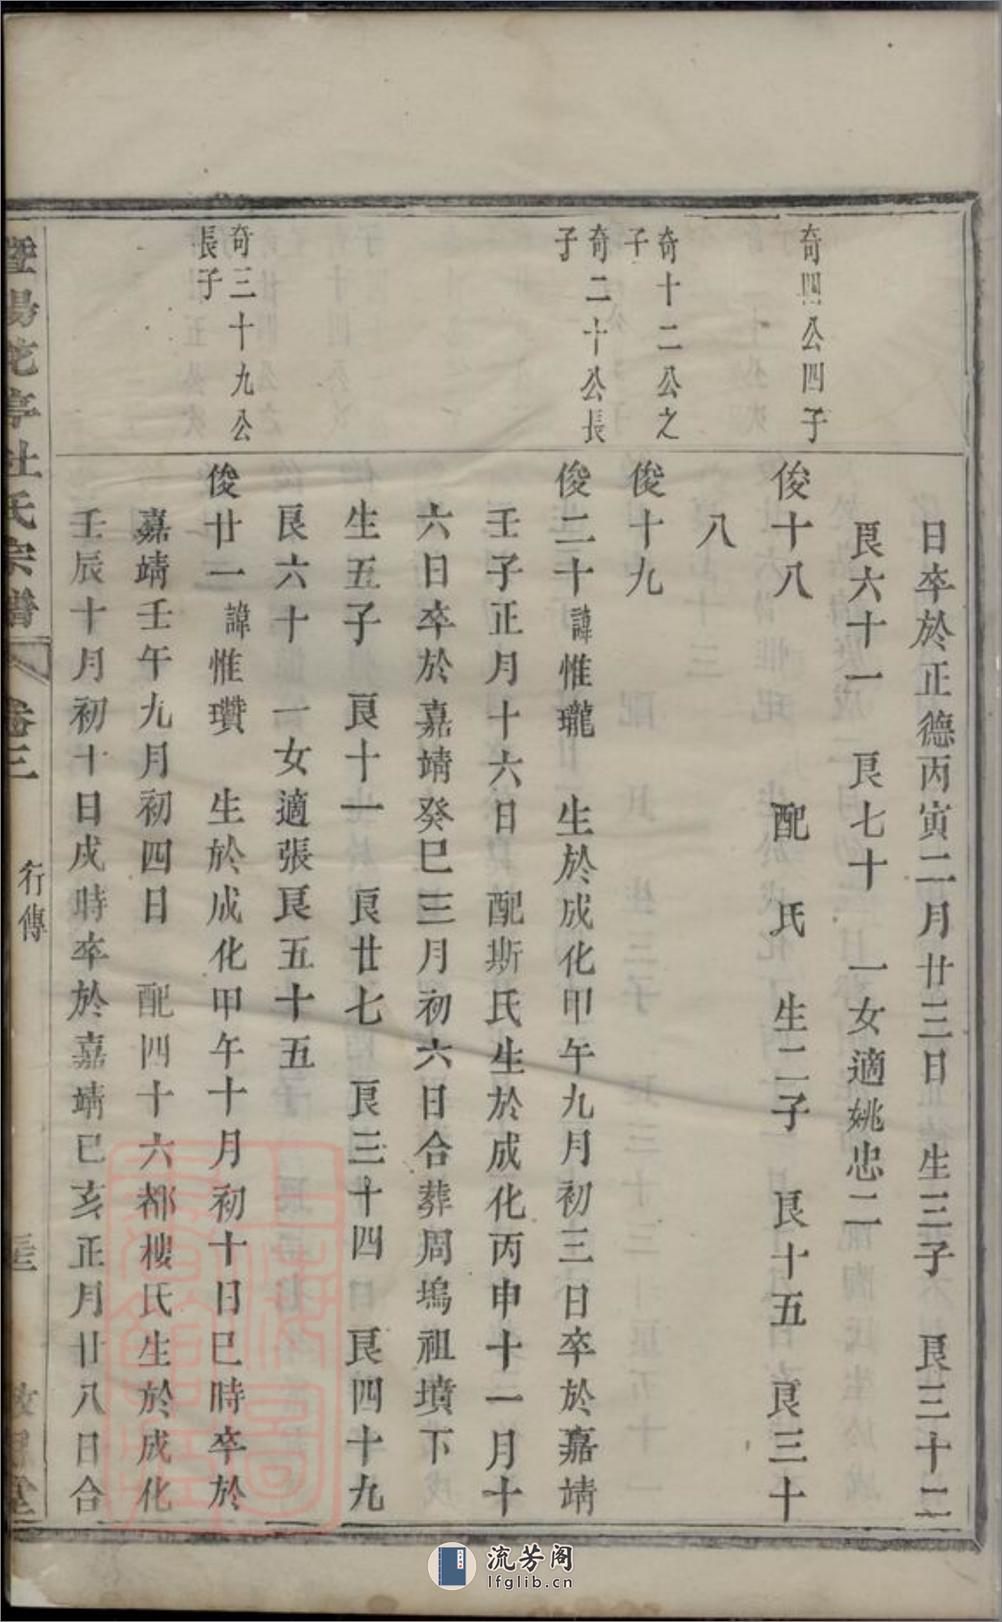 日卒於正德丙寅二月廿三日 生三子 良三十二
良六十一 良七十 一女適姚忠二
奇四公四子
俊十八 配 氏 生二子 良十五 良三十
八
奇十二公之
子
俊十九
奇二十公長
子
俊二十諱惟瓏 生於成化甲午九月初三日卒於嘉靖
壬子正月十六日 配斯氏生於成化丙申十一月十
六日卒於嘉靖癸巳三月初六日合葬周塢祖墳下
生五子 良十一 良廿七 良三十四 良四十九
良六十 一女適張良五十五
奇三十九公
長子
俊廿一諱惟瓚 生於成化甲午十月初十日巳時卒於
嘉靖壬午九月初四日 配四十六都樓氏生於成化
壬辰十月初十日戌時卒於嘉靖已亥正月廿八日合
暨陽 亭杜氏宗譜 卷三 行傳
流芳阁
lfglib.cn